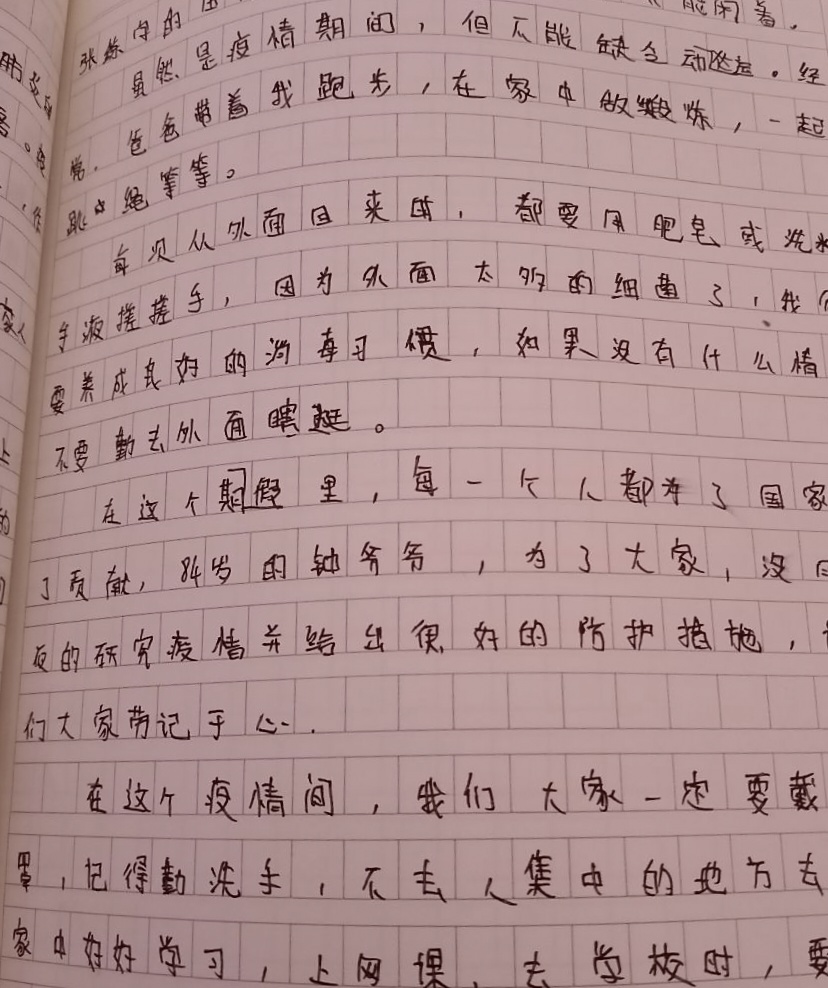 能闲着.
张练字的
虽然是疫情期间，但不能缺乏动. 经
常. 爸爸带着我跑步，在家中做锻炼，一起
跳绳等等。
每次从外面回来时，都要用肥皂或洗
手液搓搓手，因为外面太多的细菌了，我们
要养成良好的消毒习惯，如果没有什么情
不要勤去外面瞎逛。
在这个期假里，每一个人都为了国家
了贡献，84岁的钟爷爷，为了大家，没日
夜的研究疫情并给出很好的防护措施，
们大家劳记于心.
在这个疫情间，我们大家一定要戴
罩，记得勤洗手，不去人集中的地方去
家中好好学习，上网课，去学校时，要